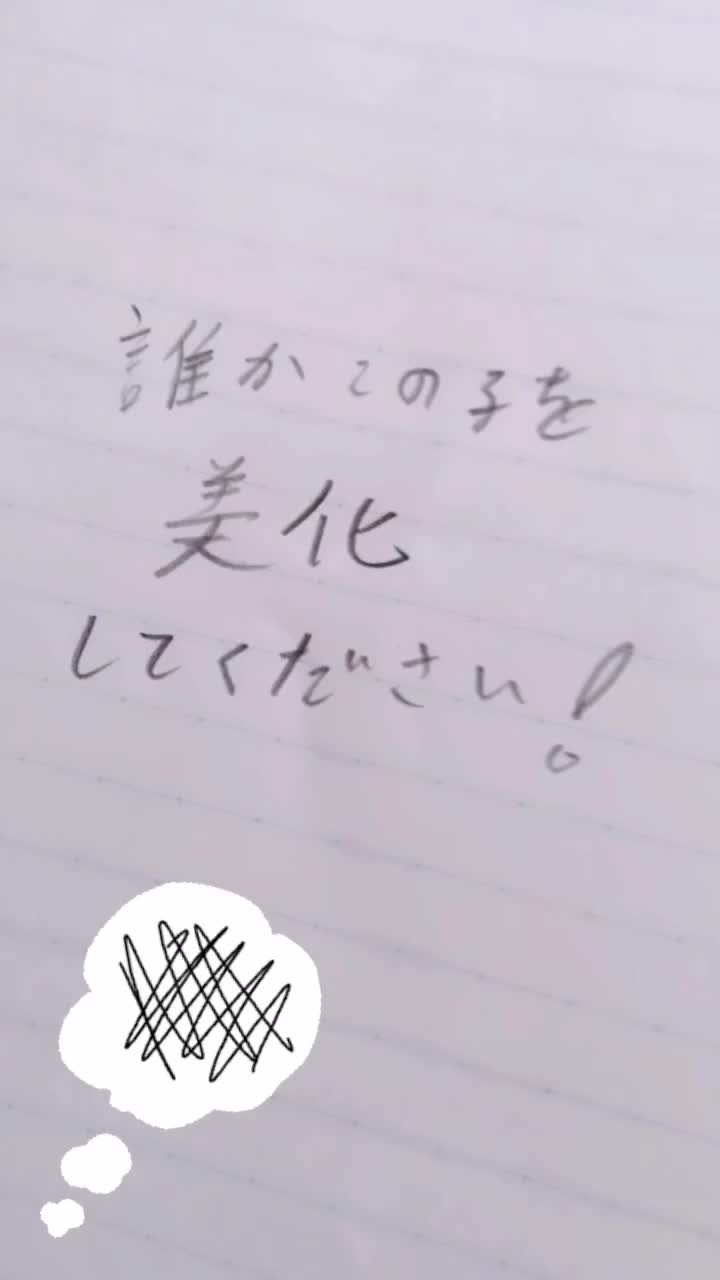 誰かこの子を
美化
してください!